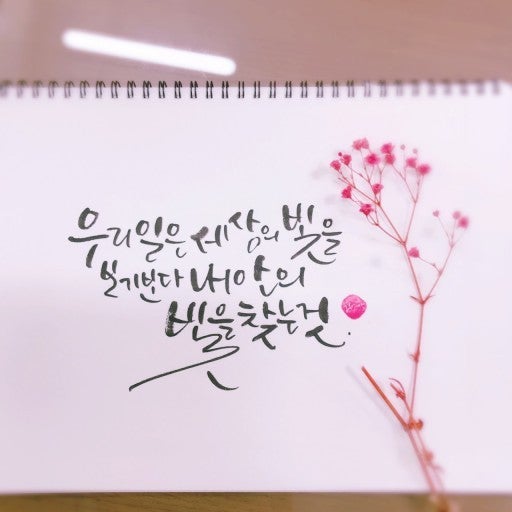 우리 일은 세상의 빛을
보기보다 내 안의
빛을 찾는 것.